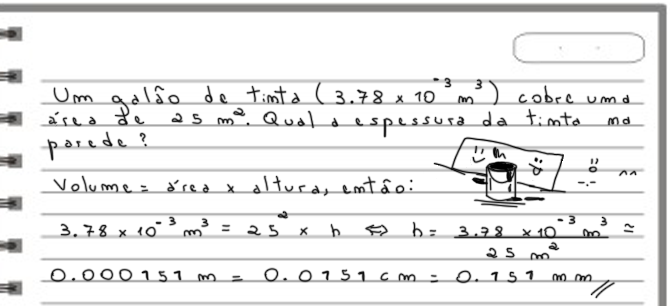 Um galão de tinta (3.78 x 10⁻³ m³) cobre uma
área de 25 m². Qual a espessura da tinta na
parede?
Volume = área x altura, então:
3.78 x 10⁻³ m³ = 25² x h ⇔ h = 3.78 x 10⁻³ m³ ≃
25 m²
0.000151 m = 0.0151 cm = 0.151 mm //